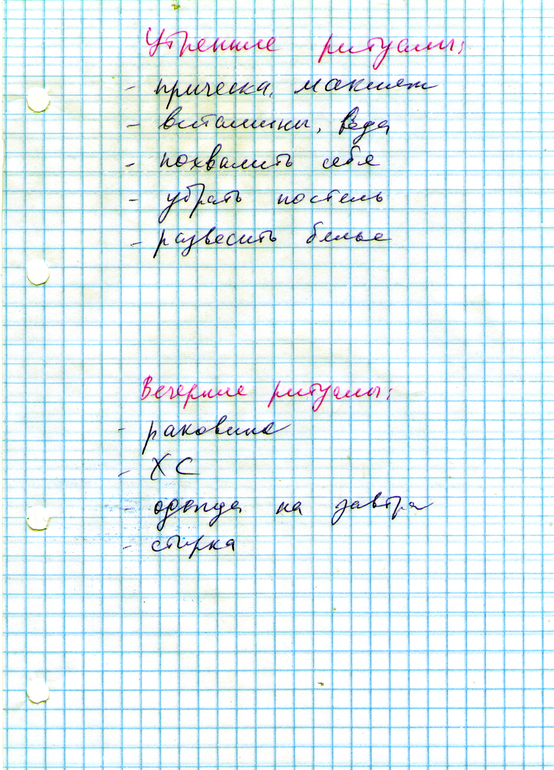 Утренние ритуалы:
- прическа, макияж
- витамины, вода
- похвалить себя
- убрать постель
- развесить белье
Вечерние ритуалы:
- раковина
- ХС
- одежда на завтра
- стирка